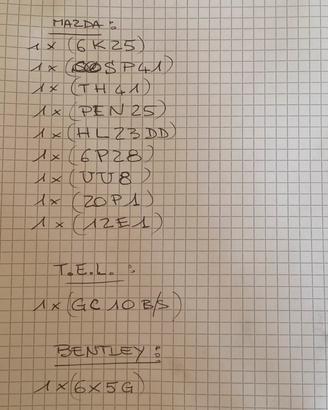 MAZDA:
1x (6K25)
1x (SP41)
1x (TH41)
1x (PEN25)
1x (HL23DD)
1x (6P28)
1x (UU8)
1x (20P1)
1x (12E1)
T.E.L.:
1x (GC 10 B/S)
BENTLEY:
1x (6X5G)